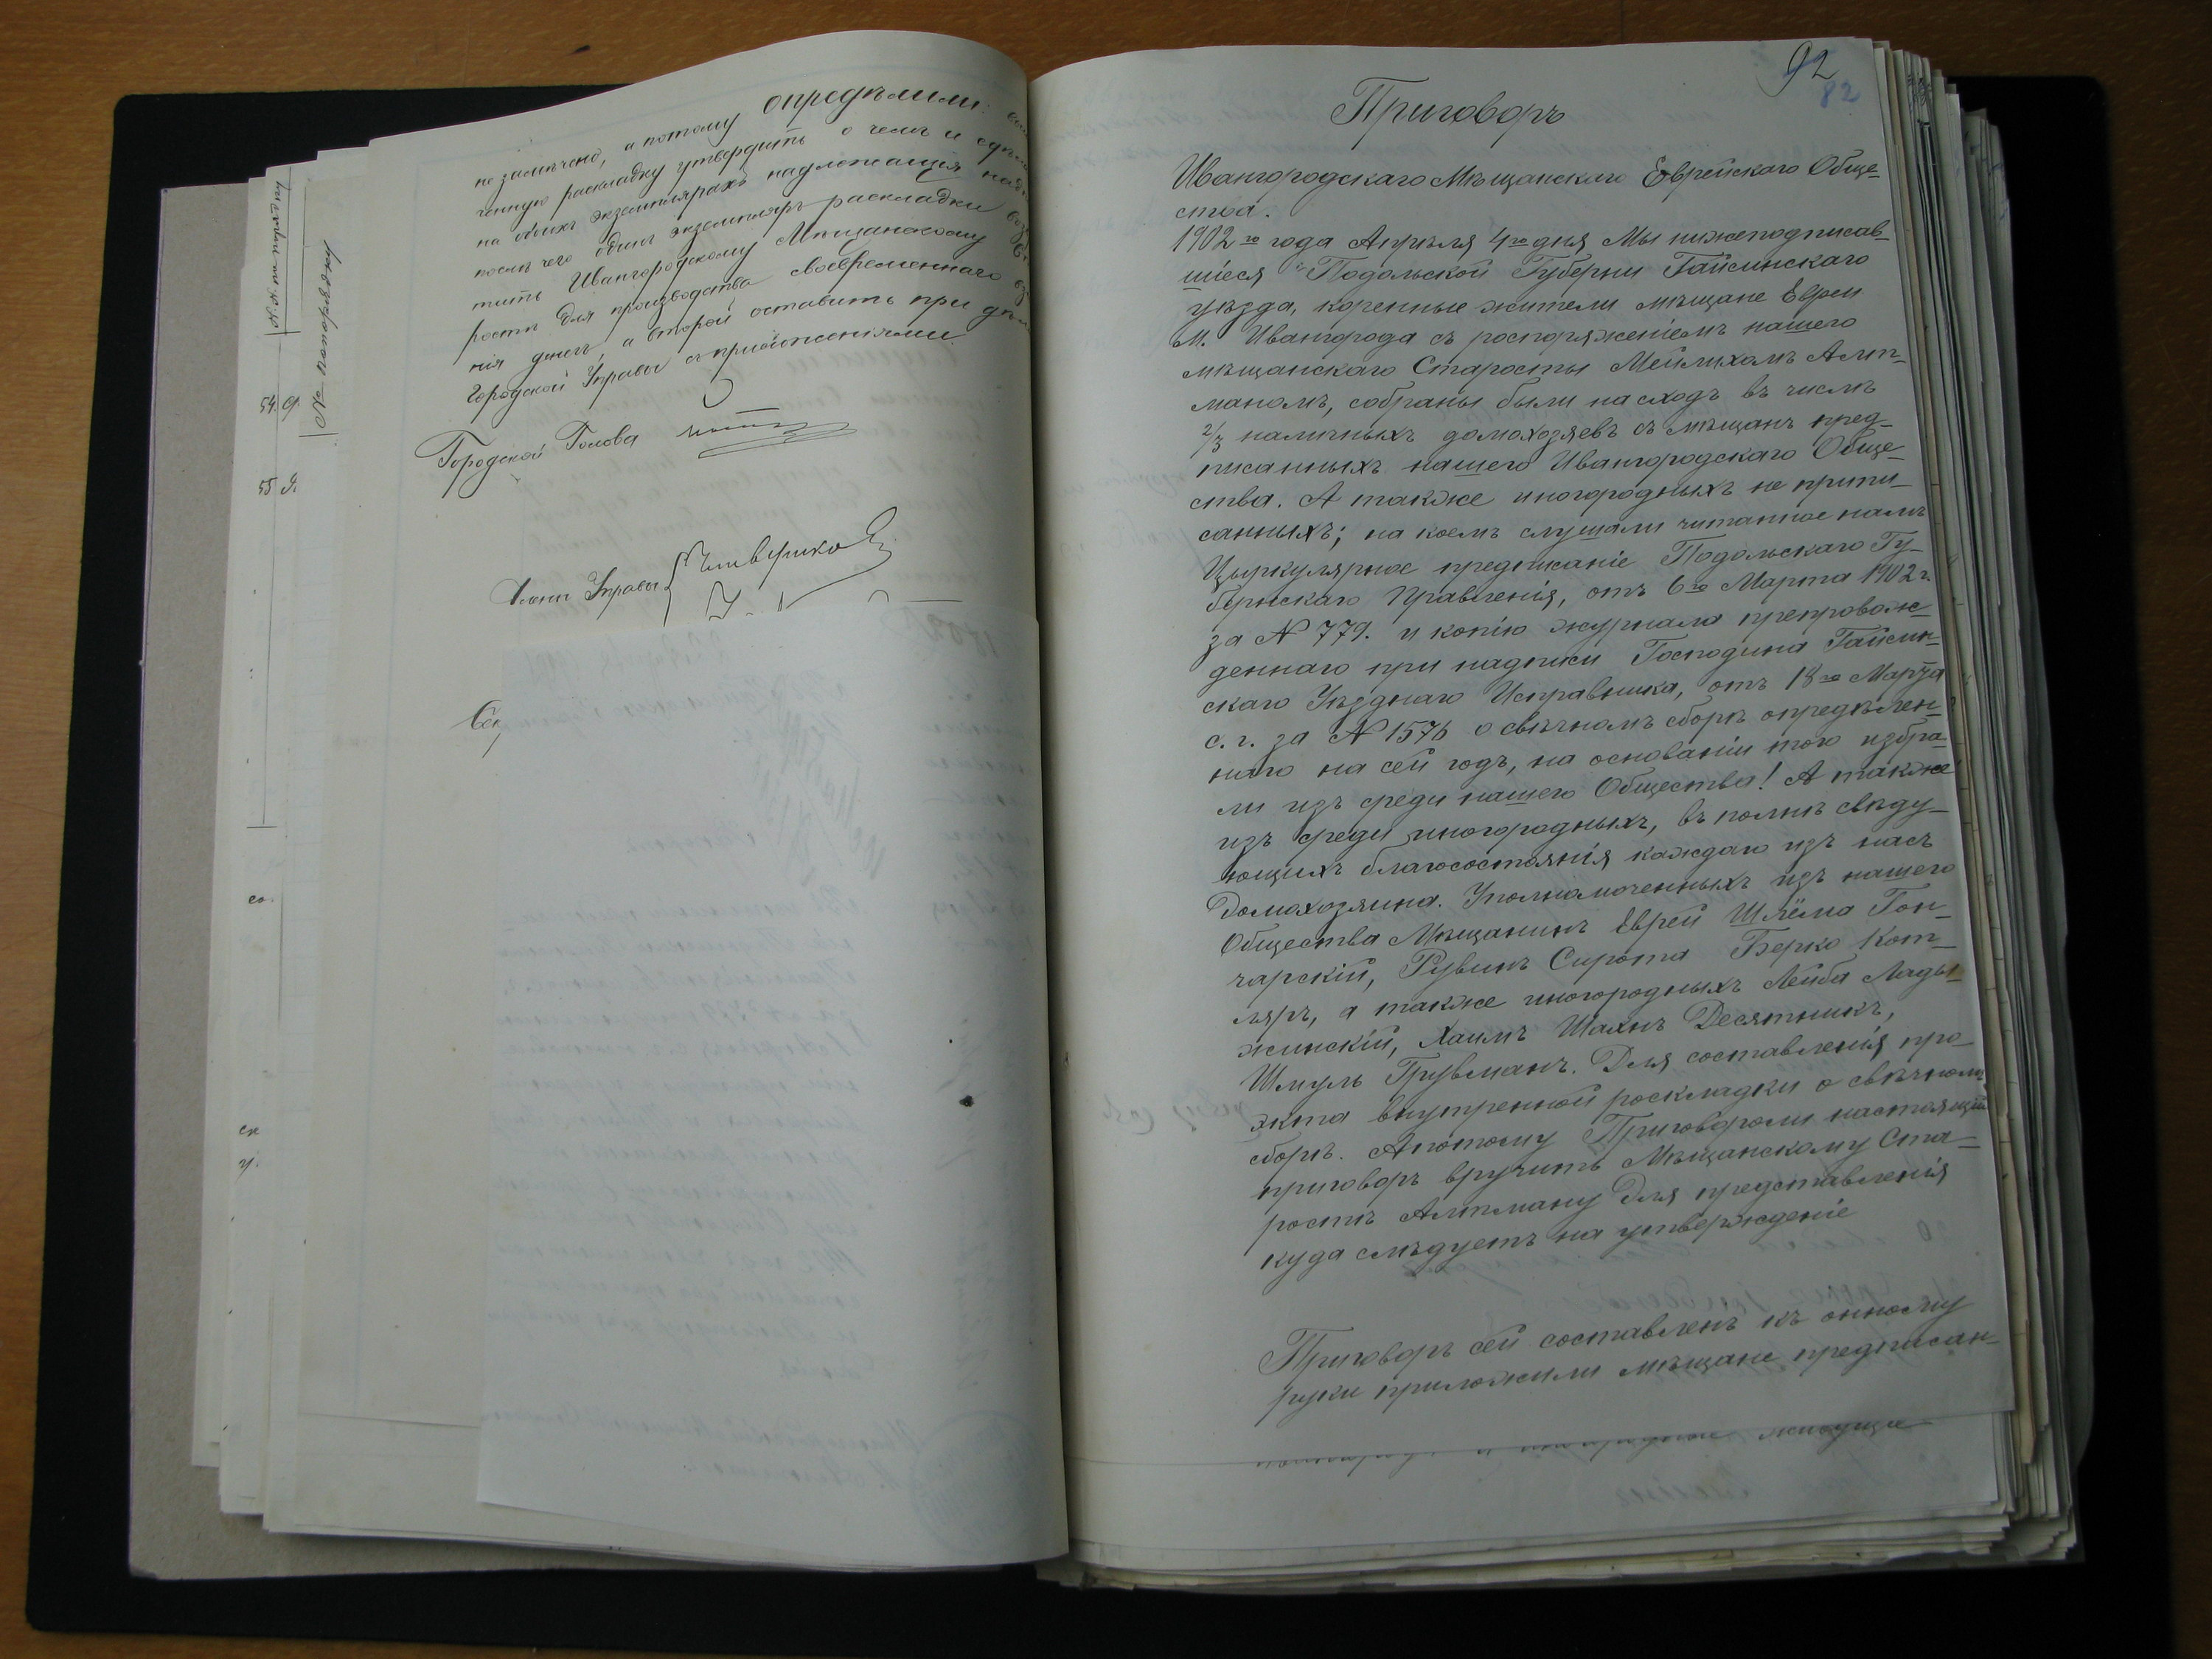 №№ по порядку
№ по порядку
54 9.
55 9.
не замѣчено, а потому опредѣлили:
ченную раскладку утвердить о чемъ и сдѣла
на обѣихъ экземплярахъ надлежащія над
послѣ чего одинъ экземпляръ раскладки воз
тить Ивангородскому Мѣщанскому
ростѣ для производства своевременнаго
нія денегъ, а второй оставить при дѣл
Городской Управы съ приложеніями
Городской Голова
Члены Управы
Сек
92
82
Приговоръ
Ивангородскаго Мѣщанскаго Еврейскаго Обще-
ства.
1902го года Апрѣля 4го дня Мы нижеподписав-
шіеся Подольской Губерніи Гайсинскаго
уѣзда, коренные жители мѣщане Евреи
М. Ивангорода съ роспоряженіемъ нашего
мѣщанскаго Старосты Мейлихомъ Альт-
маномъ, собраны были на сходъ въ числѣ
2/3 наличныхъ домохозяевъ съ мѣщанъ пред-
писанныхъ нашего Ивангородскаго Обще-
ства. А также иногородныхъ не припи-
санныхъ; на коемъ слушали читанное намъ
Цыркулярное предписаніе Подольскаго Гу-
бернскаго Правленія, отъ 6го Марта 1902 г.
за № 779. и копію журнала препровож-
деннаго при надписи Господина Гайсин-
скаго Уѣзднаго Исправника, отъ 18го Марта
с. г. за № 1576 о свѣчномъ сборѣ опредѣлен-
наго на сей годъ, на основаніи того избра-
ли изъ среди нашего Общества! А также
изъ среди иногородныхъ, въ полнѣ свѣду-
ющихъ благосостоянія каждаго изъ насъ
Домохозяина. Уполномоченныхъ изъ нашего
Общества Мѣщанинъ Еврей Шлёма Гон-
чарскій, Рувинъ Сирота Берко Кот-
ляръ, а также иногородныхъ Лейба Лады-
жинскій, Хаимъ Шахнъ Десятникъ,
Шмуль Грувманъ. Для составленія про-
экта внутренной роскладки о свѣчномъ
сборѣ. Апотому Приговороли настоящій
приговоръ вручить Мѣщанскому Ста-
ростѣ Альтману Для представленія
куда слѣдуетъ на утвержденіе
Приговоръ сей составленъ къ онному
руки приложили мѣщане предписан-
живущіе